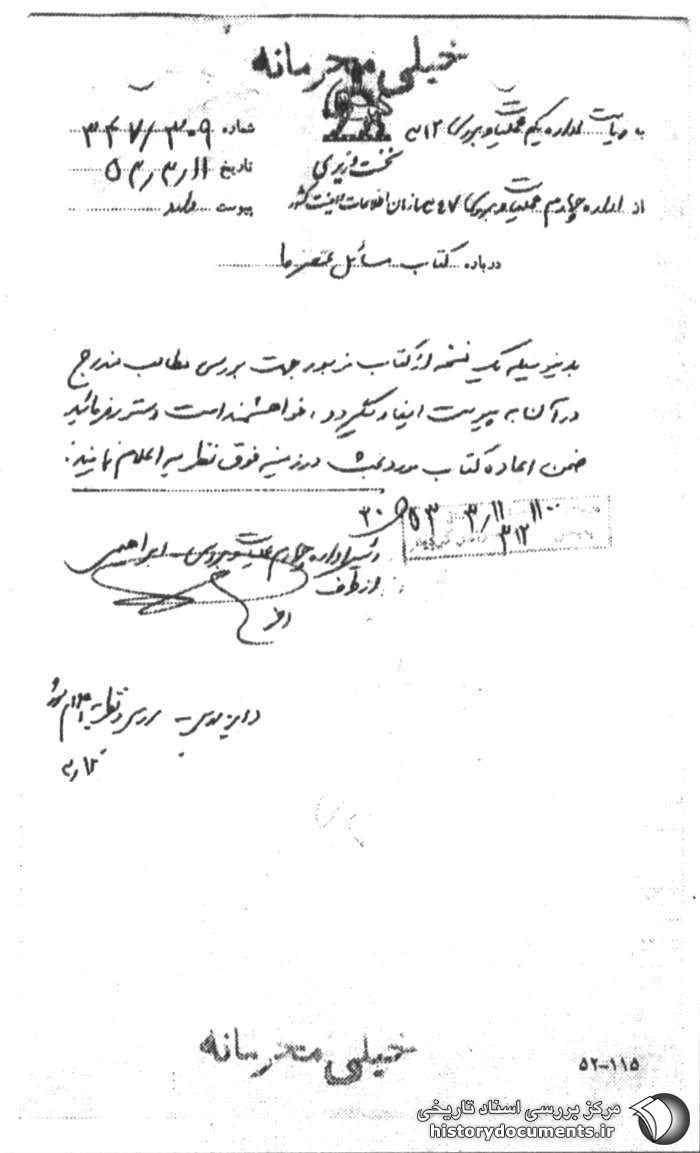 خیلی محرمانه
به ریاست اداره یکم عملیات و بررسی ۳۱۲
شماره ۳۴۷/۳۰۹
نخست وزیری
تاریخ ۵۳٫۳٫۱۱
از اداره چهارم عملیات و بررسی ۳۴۷ سازمان اطلاعات و امنیت کشور
پیوست دارد
درباره کتاب مسائل عتصرما
بدینوسیله یک نسخه از کتاب مزبور جهت بررسی مطالب مندرج
در آن به پیوست ایفاد میگردد، خواهشمند است دستور فرمائید
ضمن اعاده کتاب مورد بحث در زمینه فوق نظریه اعلام نمایند.
۵۳ ۳٫۱۱ ۱۱۰۰
۳۱۲
رئیس اداره چهارم عملیات و بررسی - ابراهیمی
از طرف
بررسی و نظریه اعلام شود
خیلی محرمانه
۵۲-۱۱۵
مرکز بررسی اسناد تاریخی
historydocuments.ir